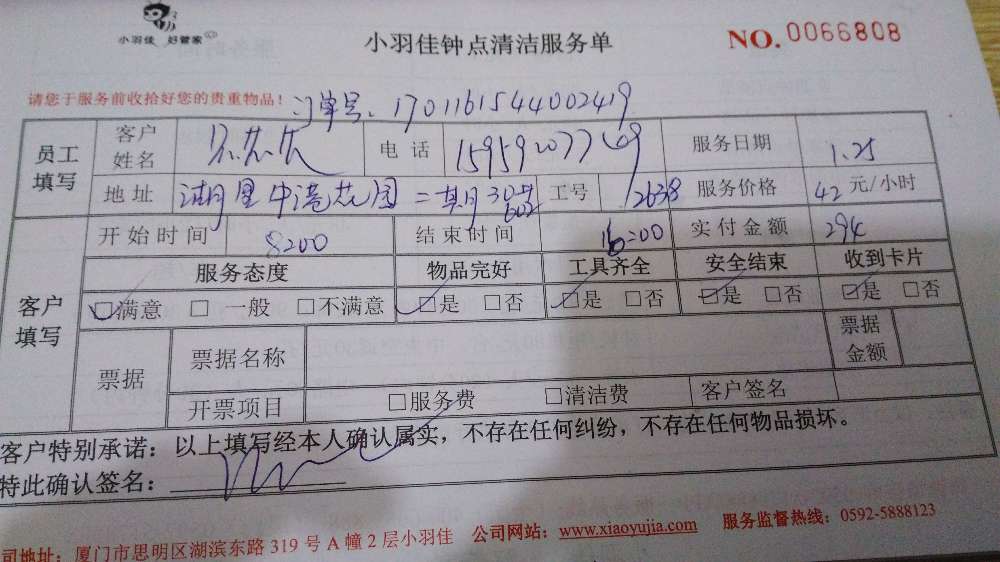 小羽佳 好管家
小羽佳钟点清洁服务单 NO.0066808
请您于服务前收拾好您的贵重物品！ 订单号：1701161544002419
员工填写 客户姓名 电话 15959207769 服务日期 1.25
地址 中港花园二期30 602 工号 12638 服务价格 42元/小时
客户填写 开始时间 8200 结束时间 16:00 实付金额 294
服务态度 物品完好 工具齐全 安全结束 收到卡片
☑满意 □一般 □不满意 ☑是 □否 ☑是 □否 ☑是 □否 ☑是 □否
票据 票据名称 票据金额
开票项目 □服务费 □清洁费 客户签名
客户特别承诺：以上填写经本人确认属实，不存在任何纠纷，不存在任何物品损坏。
特此确认签名：
司地址：厦门市思明区湖滨东路319号A幢2层小羽佳 公司网站：www.xiaoyujia.com 服务监督热线：0592-5888123